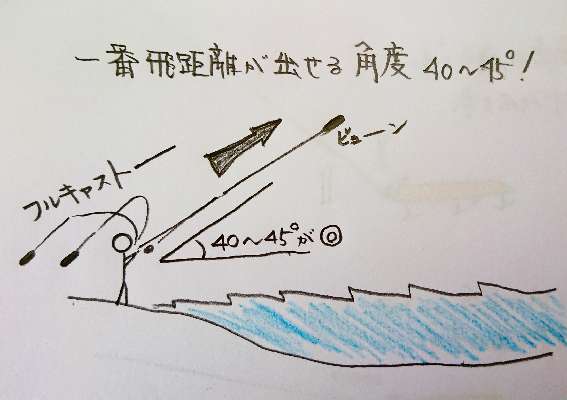 一番飛距離が出せる角度 40〜45°!
ビューン
フルキャストー
40〜45°が◎